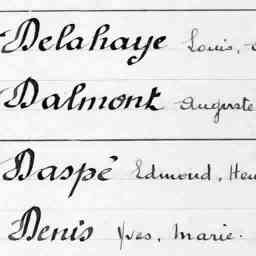 Delahaye Louis,
Dalmont Auguste
Daspé Edmond, Hen
Denis Yves, Marie.